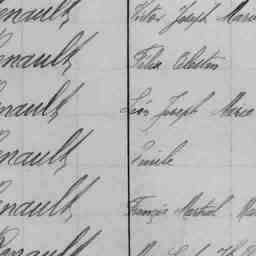 Renault Victor Joseph Marie
Renault Félix Célestin
Renault Léon Joseph Marie
Renault Emile
Renault François Martial Ma
Renault